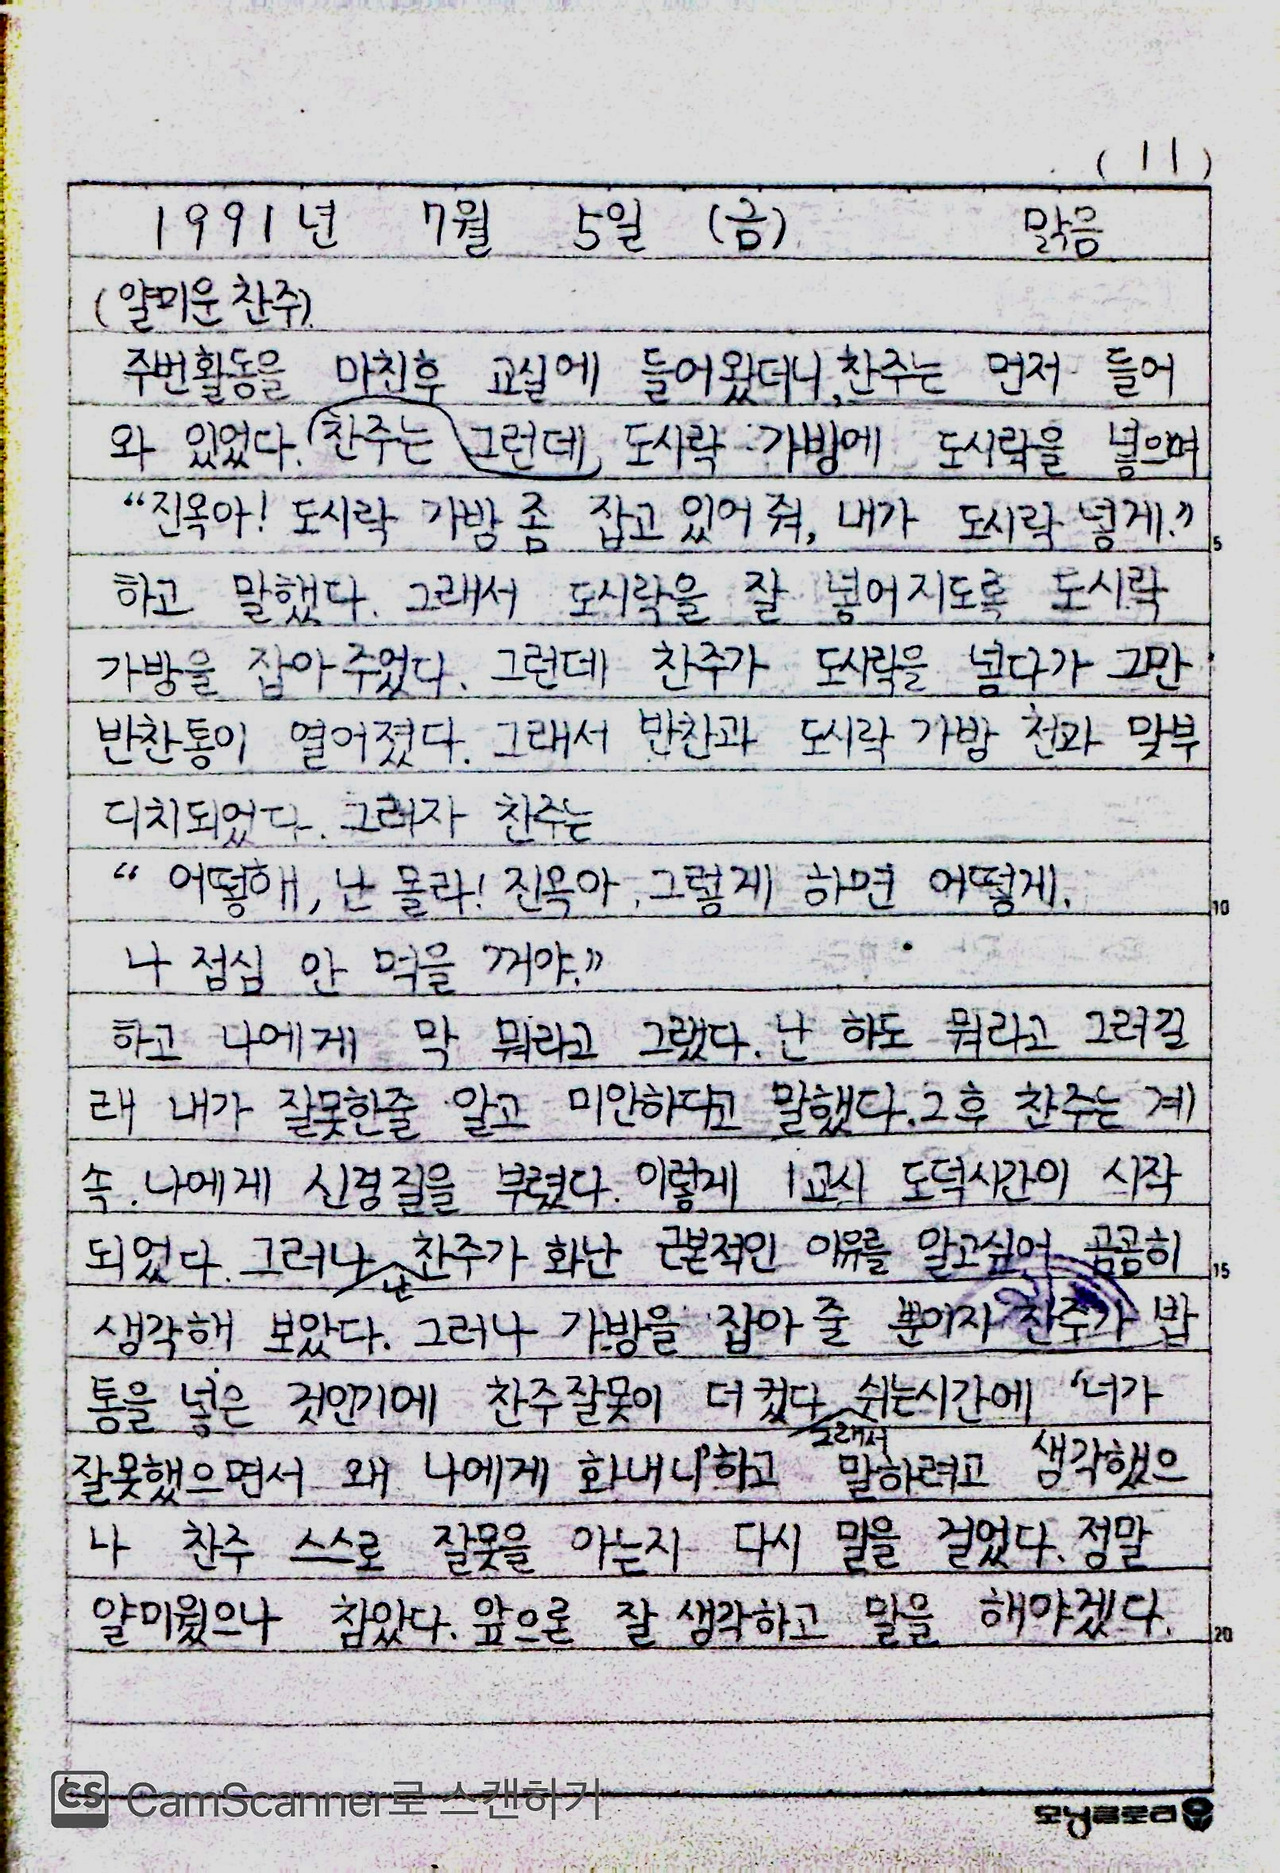 ( 11 )
1991년 7월 5일 (금) 맑음
(얄미운 찬주)
주번활동을 마친후 교실에 들어왔더니, 찬주는 먼저 들어
와 있었다. 찬주는 그런데 도시락 가방에 도시락을 넣으며
“진옥아! 도시락 가방 좀 잡고 있어 줘, 내가 도시락 넣게.”
하고 말했다. 그래서 도시락을 잘 넣어지도록 도시락
가방을 잡아 주었다. 그런데 찬주가 도시락을 넣다가 그만
반찬통이 열어졌다. 그래서 반찬과 도시락 가방 천과 맞부
디치되었다. 그러자 찬주는
“ 어떻해, 난 몰라! 진옥아, 그렇게 하면 어떻게.
나 점심 안 먹을 꺼야.”
하고 나에게 막 뭐라고 그랬다. 난 하도 뭐라고 그러길
래 내가 잘못한줄 알고 미안하다고 말했다. 그후 찬주는 계
속 나에게 신경질을 부렸다. 이렇게 1교시 도덕시간이 시작
되었다. 그러나 난 찬주가 화난 근본적인 이유를 알고싶어 곰곰히
생각해 보았다. 그러나 가방을 잡아 줄 뿐이지 찬주가 밥
통을 넣은 것인기에 찬주잘못이 더 컸다 그래서 쉬는시간에 ‘너가
잘못했으면서 왜 나에게 화내니’하고 말하려고 생각했으
나 찬주 스스로 잘못을 아는지 다시 말을 걸었다. 정말
얄미웠으나 참았다. 앞으론 잘 생각하고 말을 해야겠다.
5
10
15
20
CS CamScanner로 스캔하기
모닝글로리